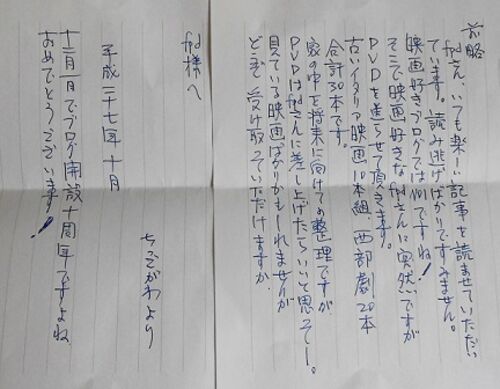 前略
fpdさん、いつも楽しい記事を読ませていただい
ています。読み逃げばかりですみません。
映画好きブログではNo.1ですね!
そこで映画好きなfpdさんに突然ですが
DVDを送らせて頂きます。
古いイタリア映画10本組 西部劇20本
合計30本です。
家の中を将来に向けての整理ですが
DVDはfpdさんに差し上げたらいいと思そー。
見ている映画ばかりかもしれませんが
どうぞ受け取っていただけますか
fpd様へ
平成二十七年十月
ちっごがわより
十二月一日でブログ開設十周年ですよね
おめでとうございます!